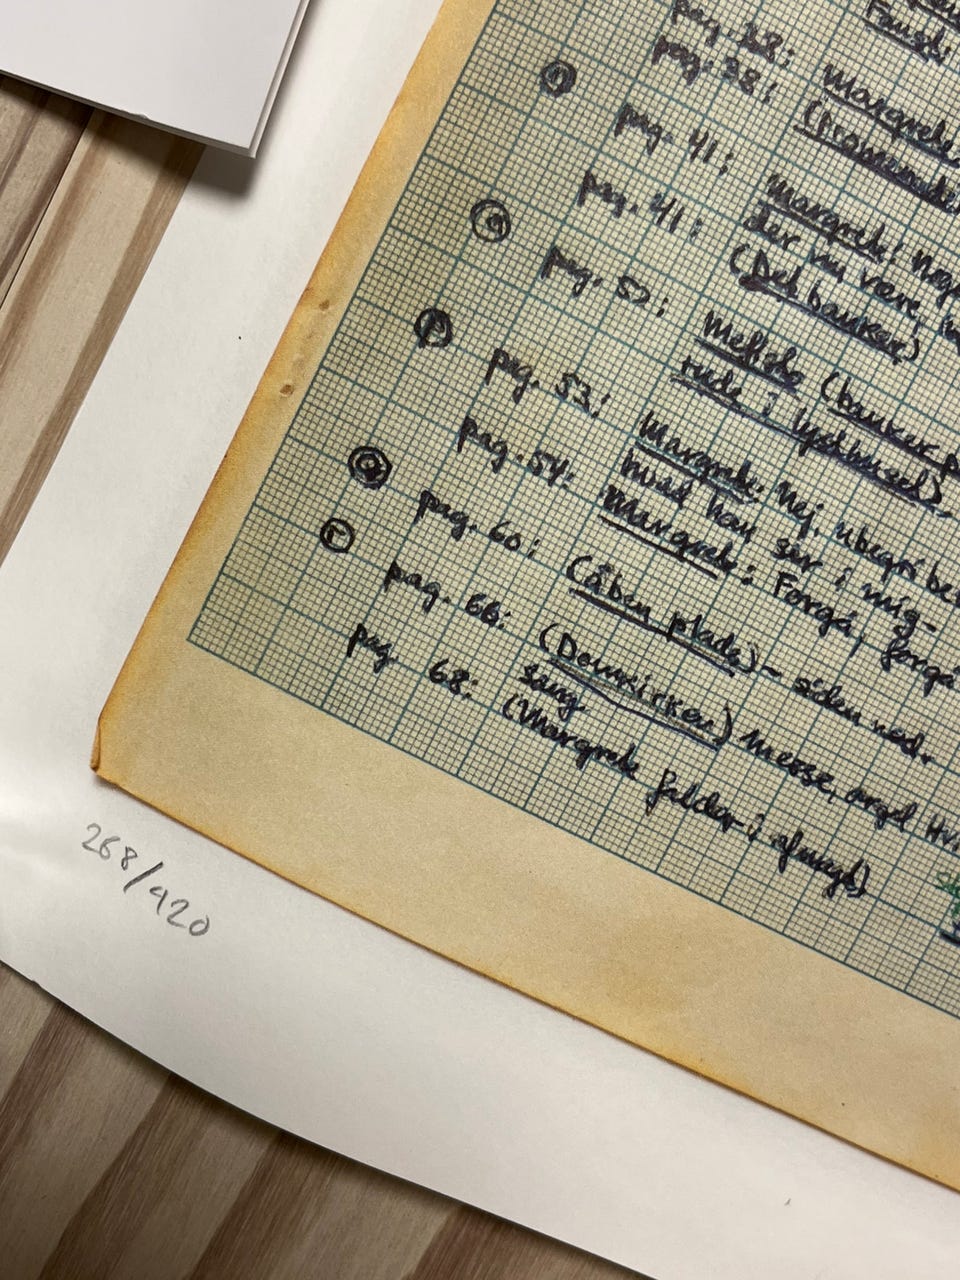 Faust:
pag. 28: Margrete
pag. 38: (Promenade
pag. 41: Margrete: Nej
der må være,
pag. 41: (Det banker)
pag. 50: Mefisto (banker p
rude i
pag. 53: Margrete: Nej, ubegribe
hvad han ser i mig.
pag. 54: Margrete: Forgå, forgå
pag. 60: (Åben plads) - siden ned.
pag. 66: (Domkirken) messe, orgel
sang.
pag. 68: (Margrete falder i afmagt)
268/420